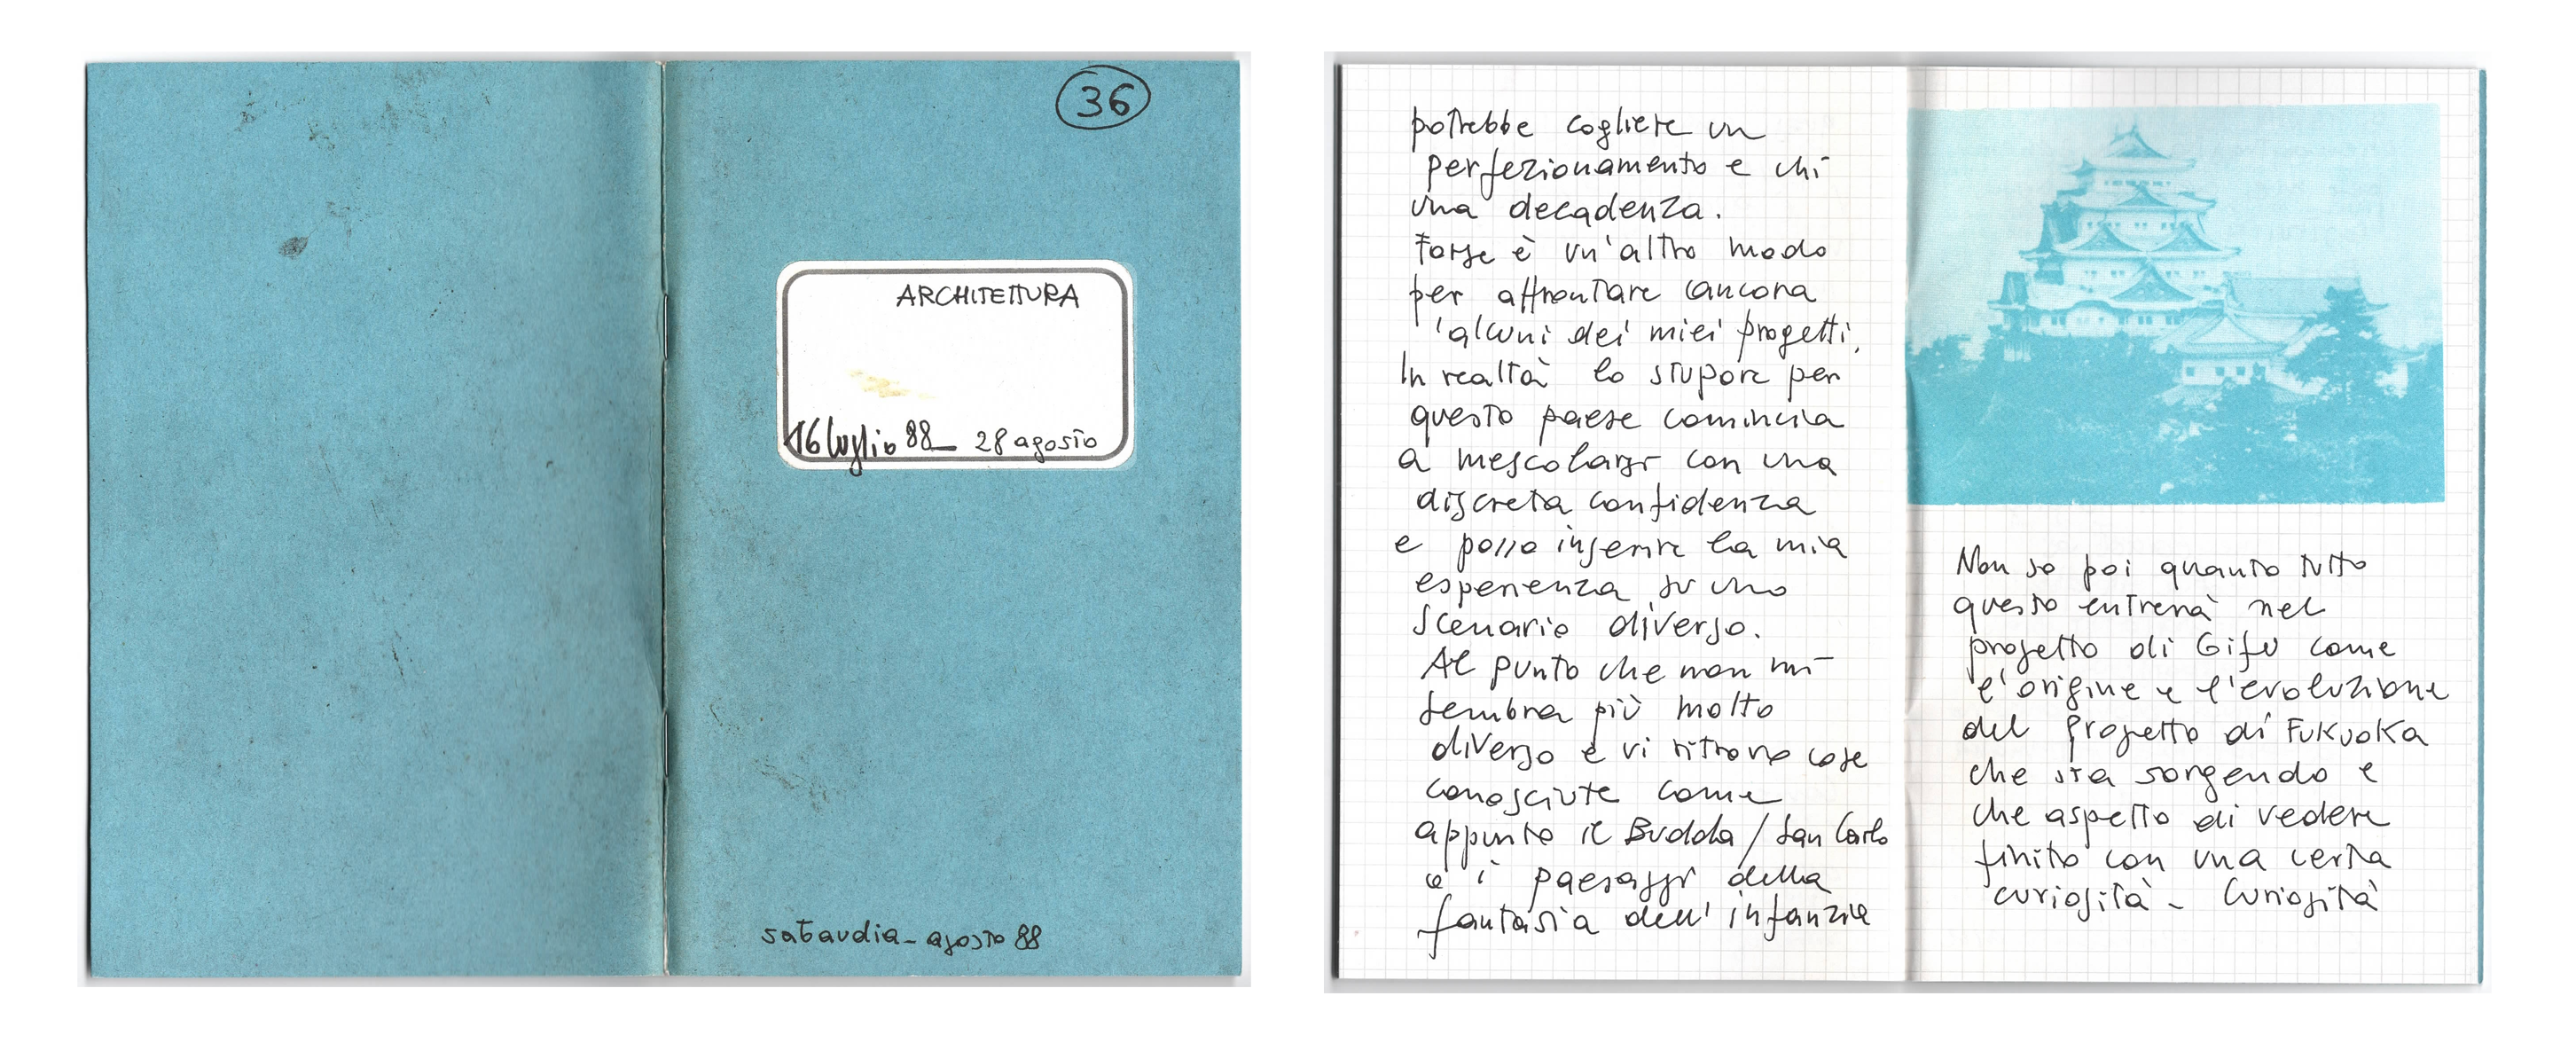 36
ARCHITETTURA
16 luglio 88 - 28 agosto
sabaudia - agosto 88
potrebbe cogliere un
perfezionamento e chi
una decadenza.
Forse è un'altro modo
per affrontare ancora
alcuni dei miei progetti.
In realtà lo stupore per
questo paese comincia
a mescolarsi con una
discreta confidenza
e posso inserire la mia
esperienza su uno
scenario diverso.
Al punto che non mi
sembra più molto
diverso e vi ritrovo cose
conosciute come
appunto il Budda / San Carlo
o i paesaggi della
fantasia dell'infanzia
Non so poi quanto tutto
questo entrerà nel
progetto di Gifu come
l'origine e l'evoluzione
del progetto di Fukuoka
che sta sorgendo e
che aspetto di vedere
finito con una certa
curiosità - Curiosità